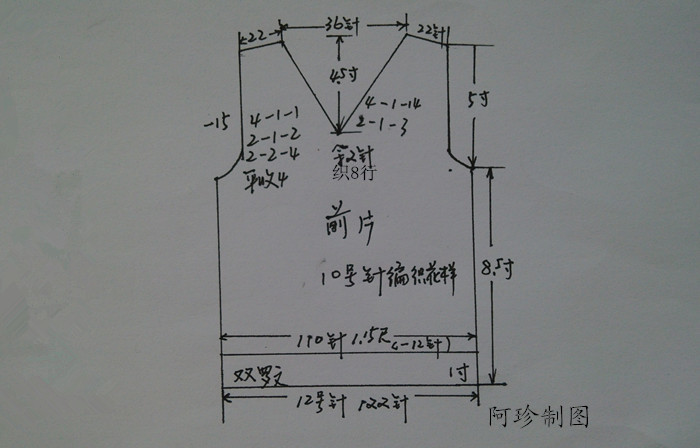 36针
22
22针
4.5寸
5寸
-15
4-1-1
2-1-2
2-2-4
平收4
4-1-14
2-1-3
织8行
前片
10号针编织花样
8.5寸
110针 1.15尺 (-12针)
双罗文
1寸
12号针 122针
阿珍制图